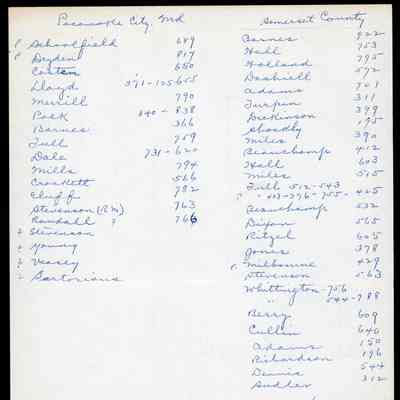 Pocomoke City, Md
Schoolfield 689
Dryden 817
Costen 650
Lloyd 371-125-655
Merrill 790
Polk 640-838
Barnes 366
Tull 759
Dale 731-620
Mills 794
Crockett 566
Cluff 792
Stevenson (R.M.) 763
Randall ? 766
Stevenson
Young
Veasey
Sartorious
Somerset County
Barnes 922
Hall 753
Holland 795
Dashiell 572
Adams 701
Turpin 311
Dickinson 399
Shockly 195
Miles 390
Beauchamp 412
Hall 603
Miles 575
Tull 512-543
" 413-276-755- 425
Beauchamp 532
Dixon 565
Pitzel 605
Jones 378
Milbourne 429
Stevenson 563
Whittington 756
" 544-788
Berry 609
Cullin 640
Adams 150
Richardson 196
Dennis 544
Sudler 312